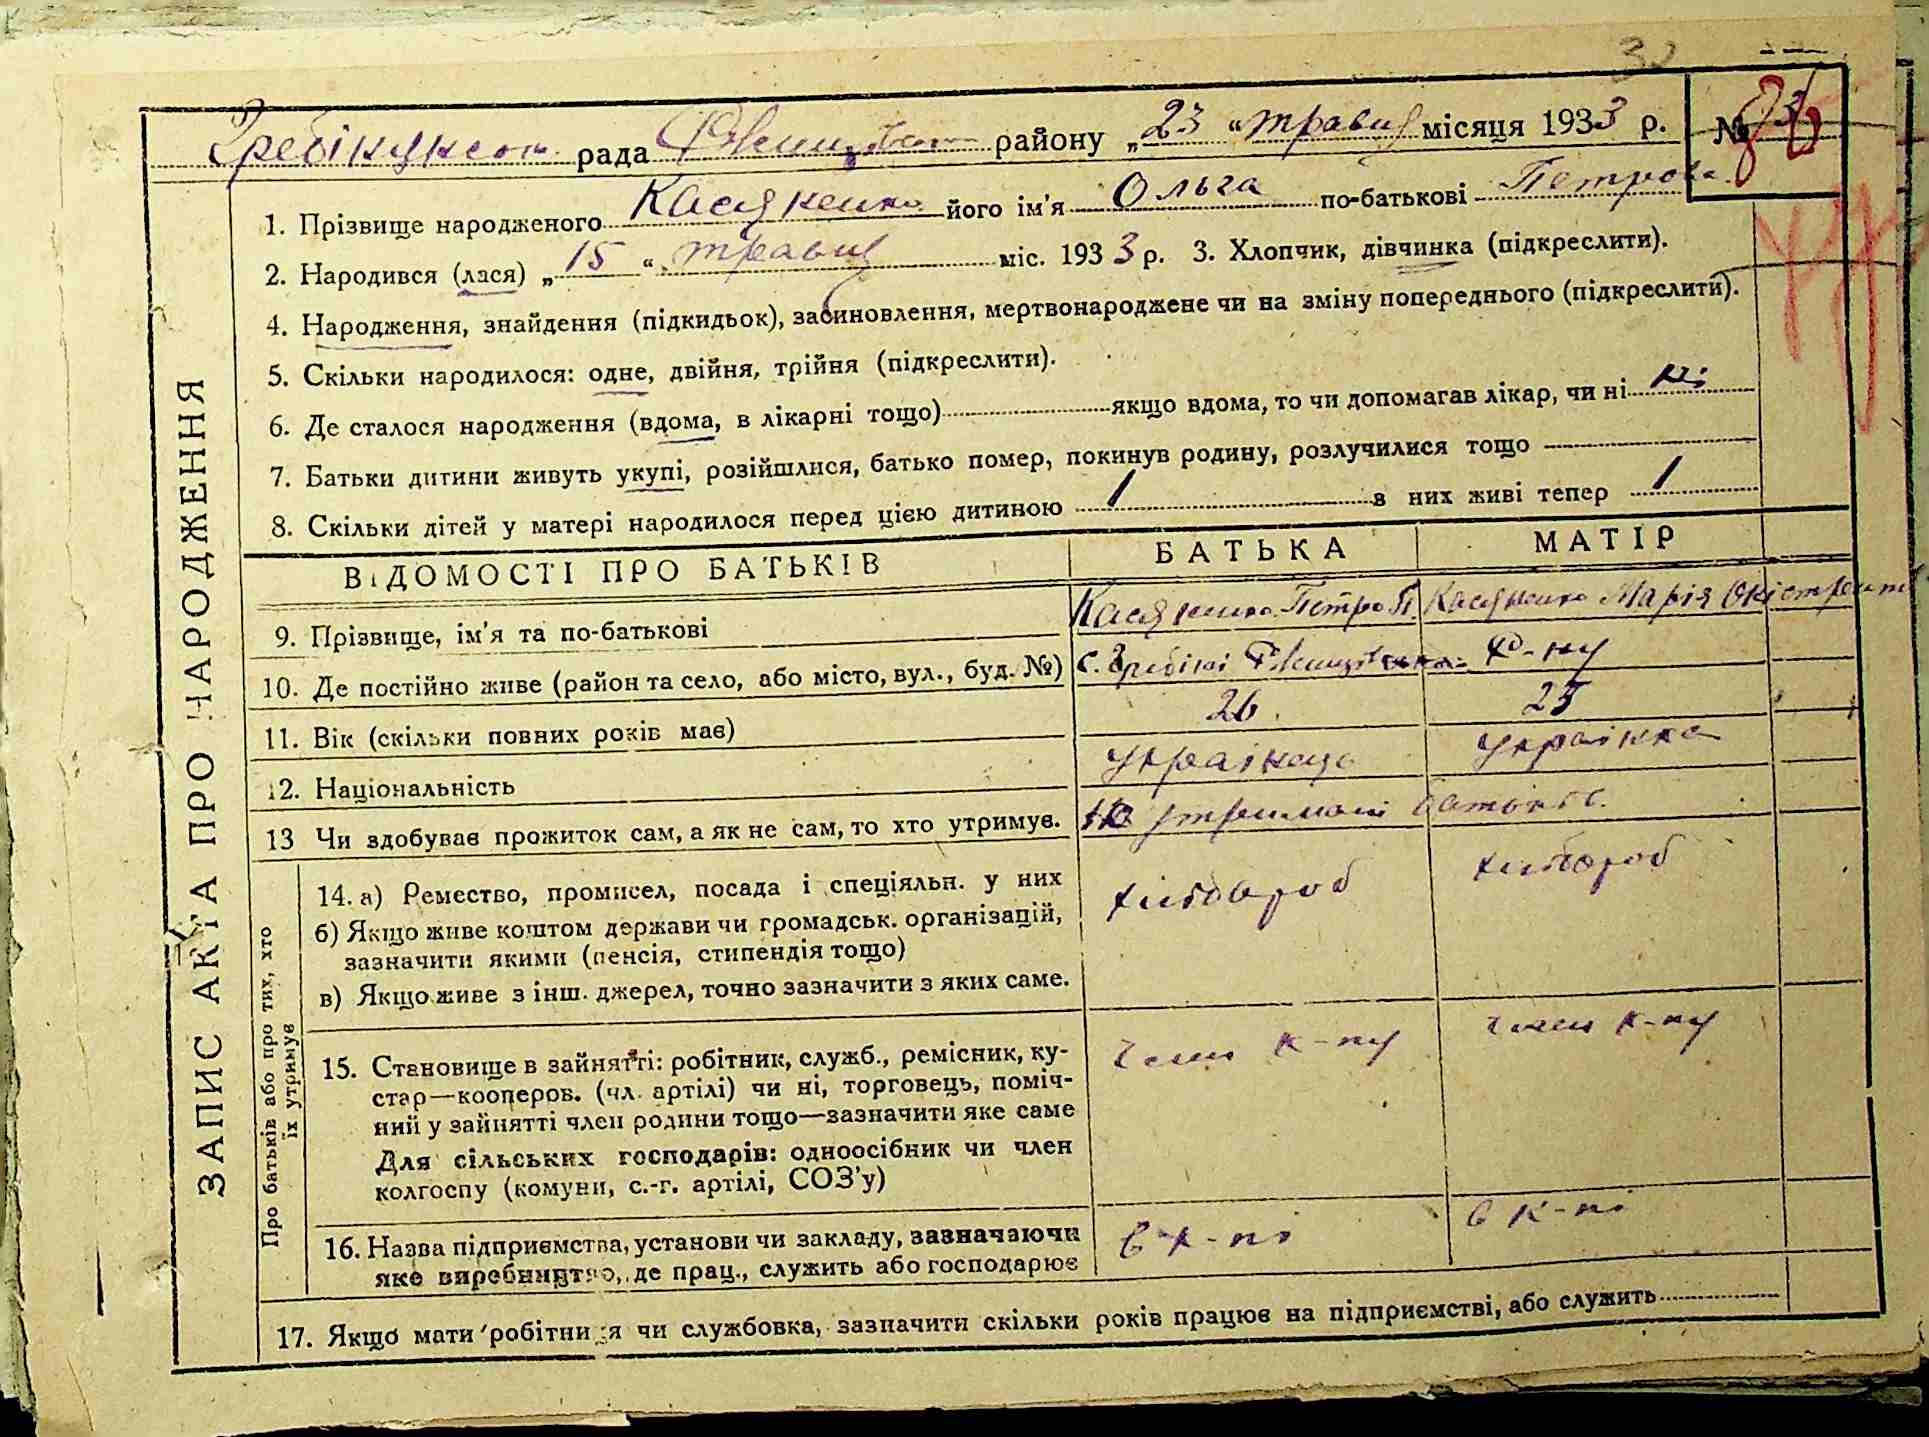 ЗАПИС АКТА ПРО НАРОДЖЕННЯ
рада району „23 “ травня місяця 1933 р. № 
1. Прізвище народженого Касяненко його ім'я Ольга по-батькові Петровн
2. Народився (лася) „ 15 “ травня міс. 1933 р. 3. Хлопчик, дівчинка (підкреслити).
4. Народження, знайдення (підкидьок), засиновлення, мертвонароджене чи на зміну попереднього (підкреслити).
5. Скільки народилося: одне, двійня, трійня (підкреслити).
6. Де сталося народження (вдома, в лікарні тощо) якщо вдома, то чи допомагав лікар, чи ні ні
7. Батьки дитини живуть укупі, розійшлися, батько помер, покинув родину, розлучилися тощо
8. Скільки дітей у матері народилося перед цією дитиною 1 з них живі тепер 1
ВІДОМОСТІ ПРО БАТЬКІВ БАТЬКА МАТІР
9. Прізвище, ім'я та по-батькові Касяненко Петро П. Касяненко Марія
10. Де постійно живе (район та село, або місто, вул., буд. №) с. Гребіні Ржищівськ. р-ну
11. Вік (скільки повних років має) 26 25
12. Національність українець українка
13 Чи здобуває прожиток сам, а як не сам, то хто утримує. На утриман батьків.
Про батьків або про тих, хто їх утримує
14. а) Ремество, промисел, посада і спеціяльн. у них хлібороб хлібороб
б) Якщо живе коштом держави чи громадськ. організацій,
зазначити якими (пенсія, стипендія тощо)
в) Якщо живе з інш. джерел, точно зазначити з яких саме.
15. Становище в зайнятті: робітник, служб., ремісник, ку-
стар—коопеpов. (чл. артілі) чи ні, торговець, поміч-
ний у зайнятті член родини тощо—зазначити яке саме
Для сільських господарів: одноосібник чи член
колгоспу (комуни, с.-г. артілі, СОЗ'у)
член к-пу член к-пу
16. Назва підприємства, установи чи закладу, зазначаючи
яке виробництво, де прац., служить або господарює
в к-пі в к-пі
17. Якщо мати робітниця чи службовка, зазначити скільки років працює на підприємстві, або служить